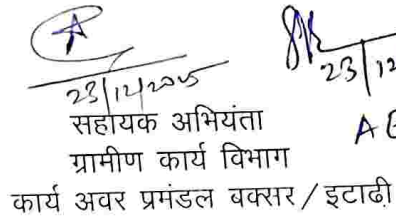 23/12/2025
23/12
सहायक अभियंता
A E
ग्रामीण कार्य विभाग
कार्य अवर प्रमंडल बक्सर/इटाढ़ी